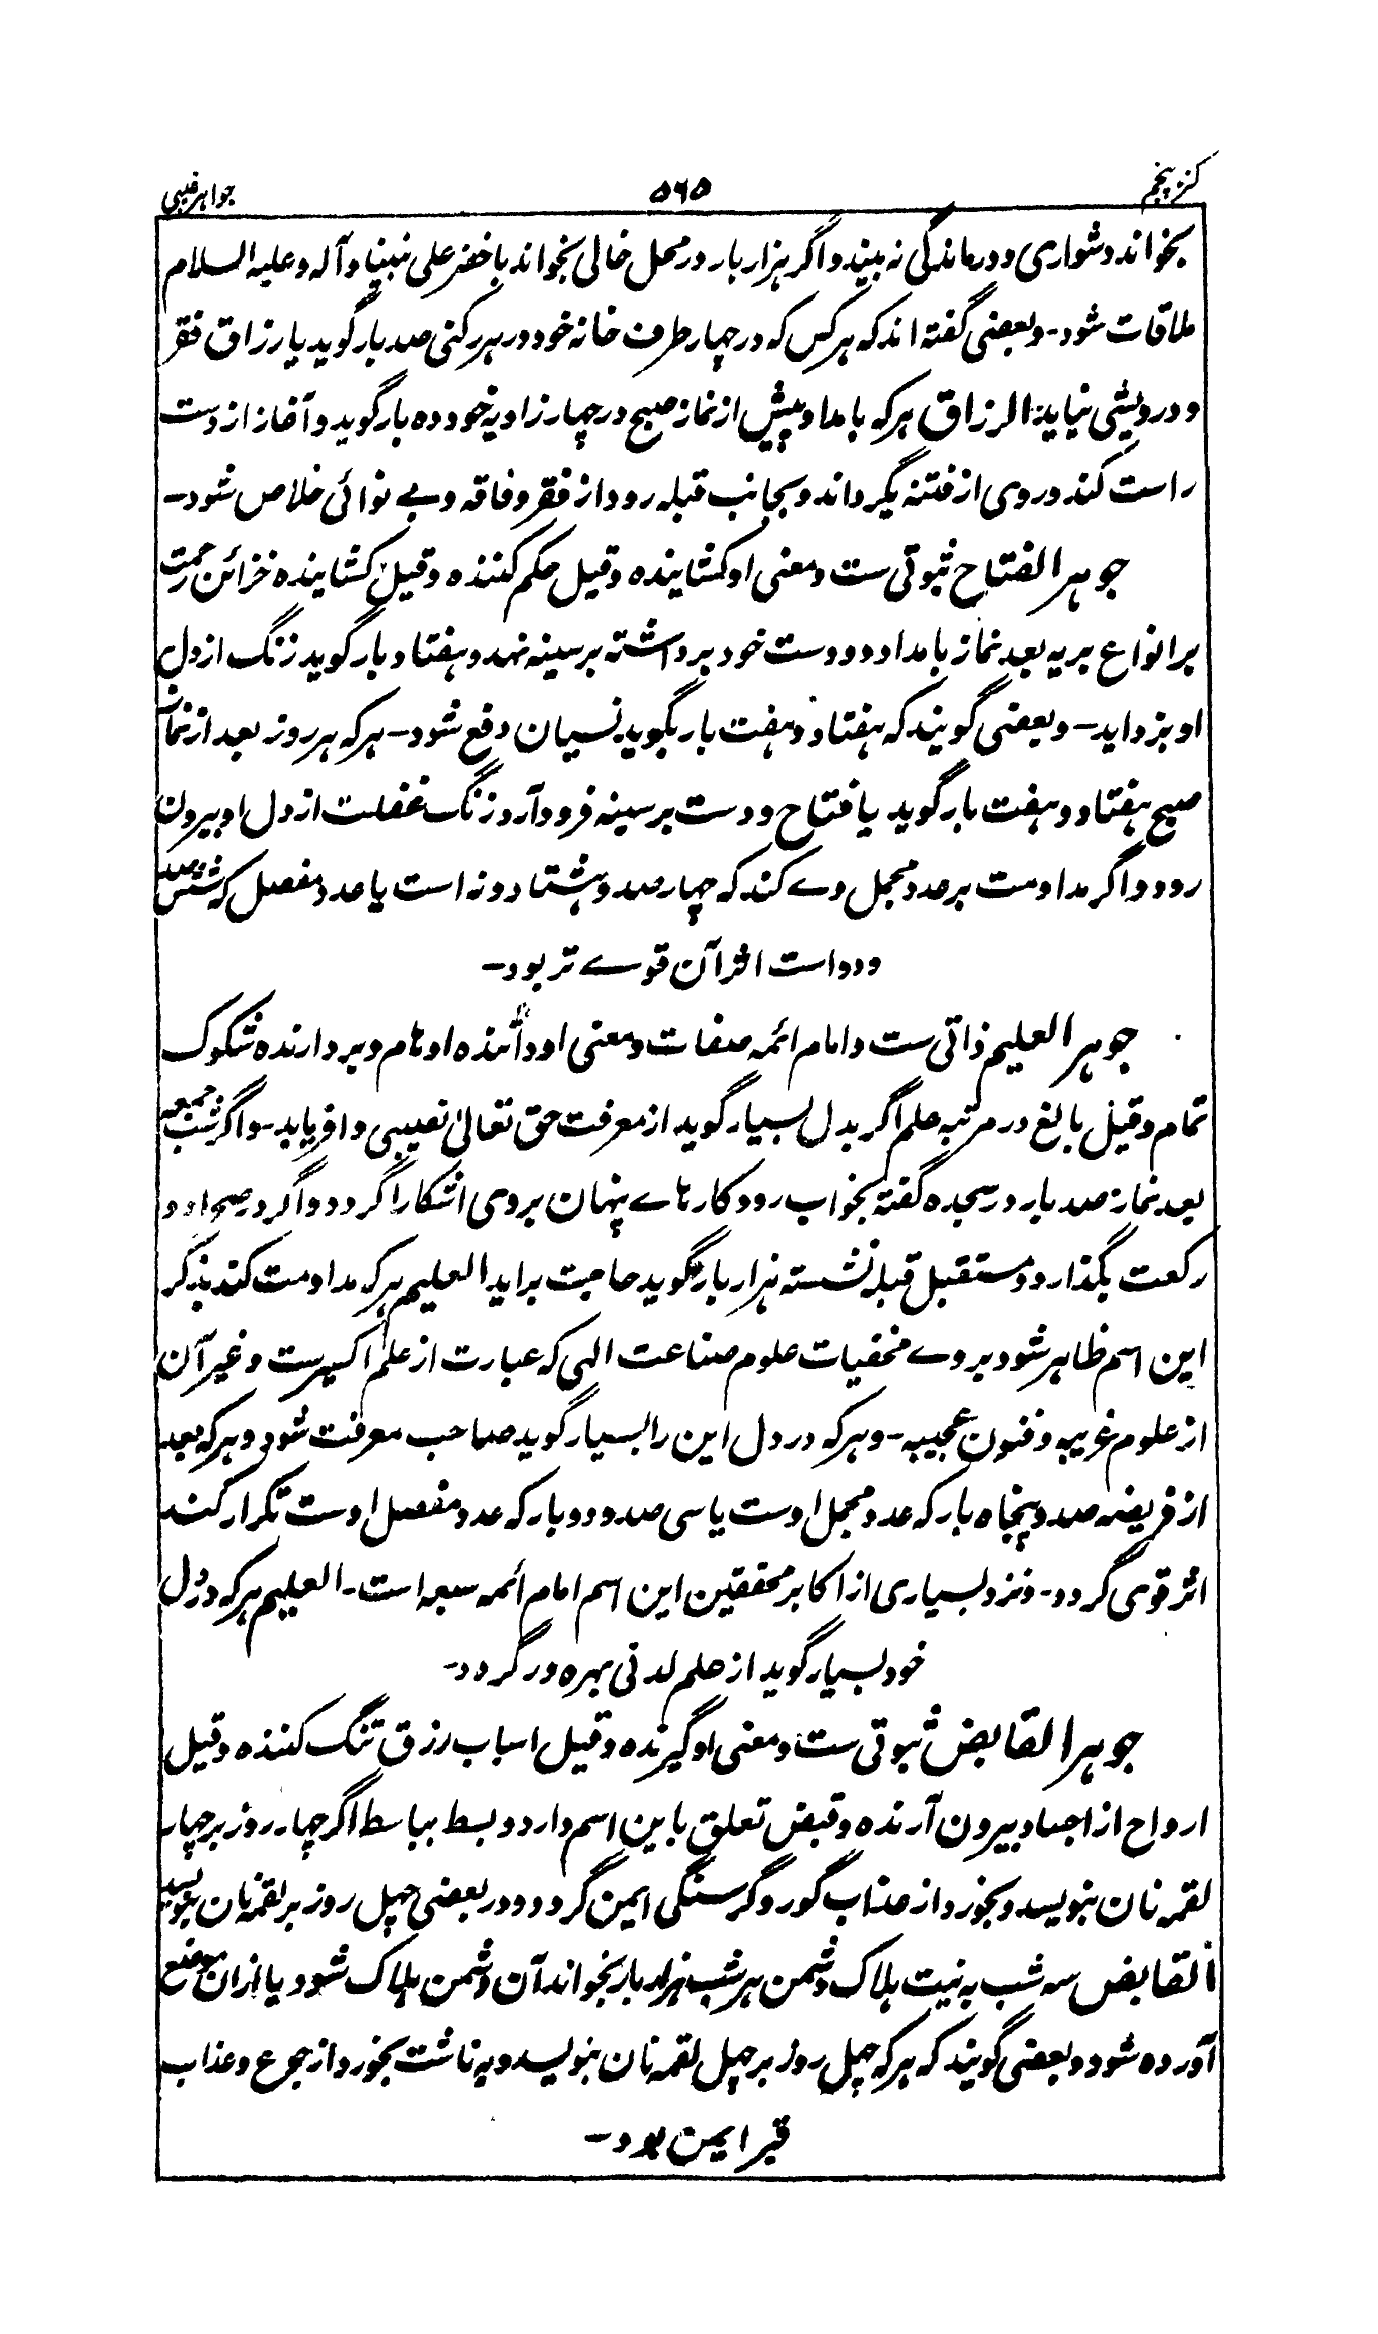 کنز پنجم ۵۶۵ جواہر غیبی
بخواند دشواری و درماندگی نہ بیند و اگر ہزار بار در محل خالی بخواند با خضر علی نبینا و آلہ و علیہ السلام
ملاقات شود۔ و بعضی گفتہ اند کہ ہر کس کہ در چہار طرف خانہ خود در ہر رکنی صد بار گوید یا رزاق فقر
و درویشی نیاید: الرزاق ہر کہ بامداد پیش از نماز صبح در چہار زاویہ خود دہ بار گوید و آغاز از دست
راست کند و روی از فتنہ بگرداند و بجانب قبلہ رود از فقر و فاقہ و بے نوائی خلاص شود۔
جوہر الفتاح ثبوتی ست و معنی او کشایندہ و قیل حکم کنندہ و قیل کشایندہ خزائن رحمت
بر انواع بریہ بعد نماز بامداد دو دست خود برداشتہ بر سینہ نہد و ہفتاد بار گوید زنگ از دل
او بزداید۔ و بعضی گویند کہ ہفتاد و ہفت بار بگوید نسیان دفع شود۔ ہر کہ ہر روز بعد از نماز
صبح ہفتاد و ہفت بار گوید یا فتاح و دست بر سینہ فرود آرد زنگ غفلت از دل او بیرون
رود و اگر مداومت بر عدد مجمل وے کند کہ چہار صد و ہشتاد و نہ است یا عدد مفصل کہ شش صد
و دو است اثر آن قوے تر بود۔
جوہر العلیم ذاتی ست و امام ائمہ صفات و معنی او دانندہ اوہام و بردارندہ شکوک
تمام و قیل بالغ در مرتبہ علم اگر بدل بسیار گوید از معرفت حق تعالیٰ نصیبی وافر یابد۔ و اگر شب جمعہ
بعد نماز صد بار در سجدہ گفتہ بخواب رود کارہاے پنہان بروی آشکارا گردد و اگر در صحرا دو
رکعت بگذارد و مستقبل قبلہ نشستہ ہزار بار بگوید حاجت برآید العلیم ہر کہ مداومت کند بذکر
این اسم ظاہر شود بر وے مخفیات علوم صناعت الہی کہ عبارت از علم اکسیرست و غیر آن
از علوم غریبہ و فنون عجیبہ۔ و ہر کہ در دل این را بسیار گوید صاحب معرفت شود و ہر کہ بعد
از فریضہ صد و پنجاہ بار کہ عدد مجمل اوست یا سی صد و دو بار کہ عدد مفصل اوست تکرار کند
اثر قوی گردد۔ و نزد بسیاری از اکابر محققین این اسم امام ائمہ سبعہ است۔ العلیم ہر کہ در دل
خود بسیار گوید از علم لدنی بہرہ ور گردد۔
جوہر القابض ثبوتی ست و معنی او گیرندہ و قیل اسباب رزق تنگ کنندہ و قیل
ارواح از اجساد بیرون آرندہ و قبض تعلق باین اسم دارد و بسط بباسط اگر چہار روز بر چہار
لقمہ نان بنویسد و بخورد از عذاب گور و گرسنگی ایمن گردد و در بعضی چہل روز بر لقمہ نان بنویسد
القابض سہ شب بہ نیت ہلاک دشمن ہر شب ہزار بار بخواند آن دشمن ہلاک شود یا ازان موضع
آوردہ شود و بعضی گویند کہ ہر کہ چہل روز بر چہل لقمہ نان بنویسد و بہ ناشت بخورد از جوع و عذاب
قبر ایمن بود۔